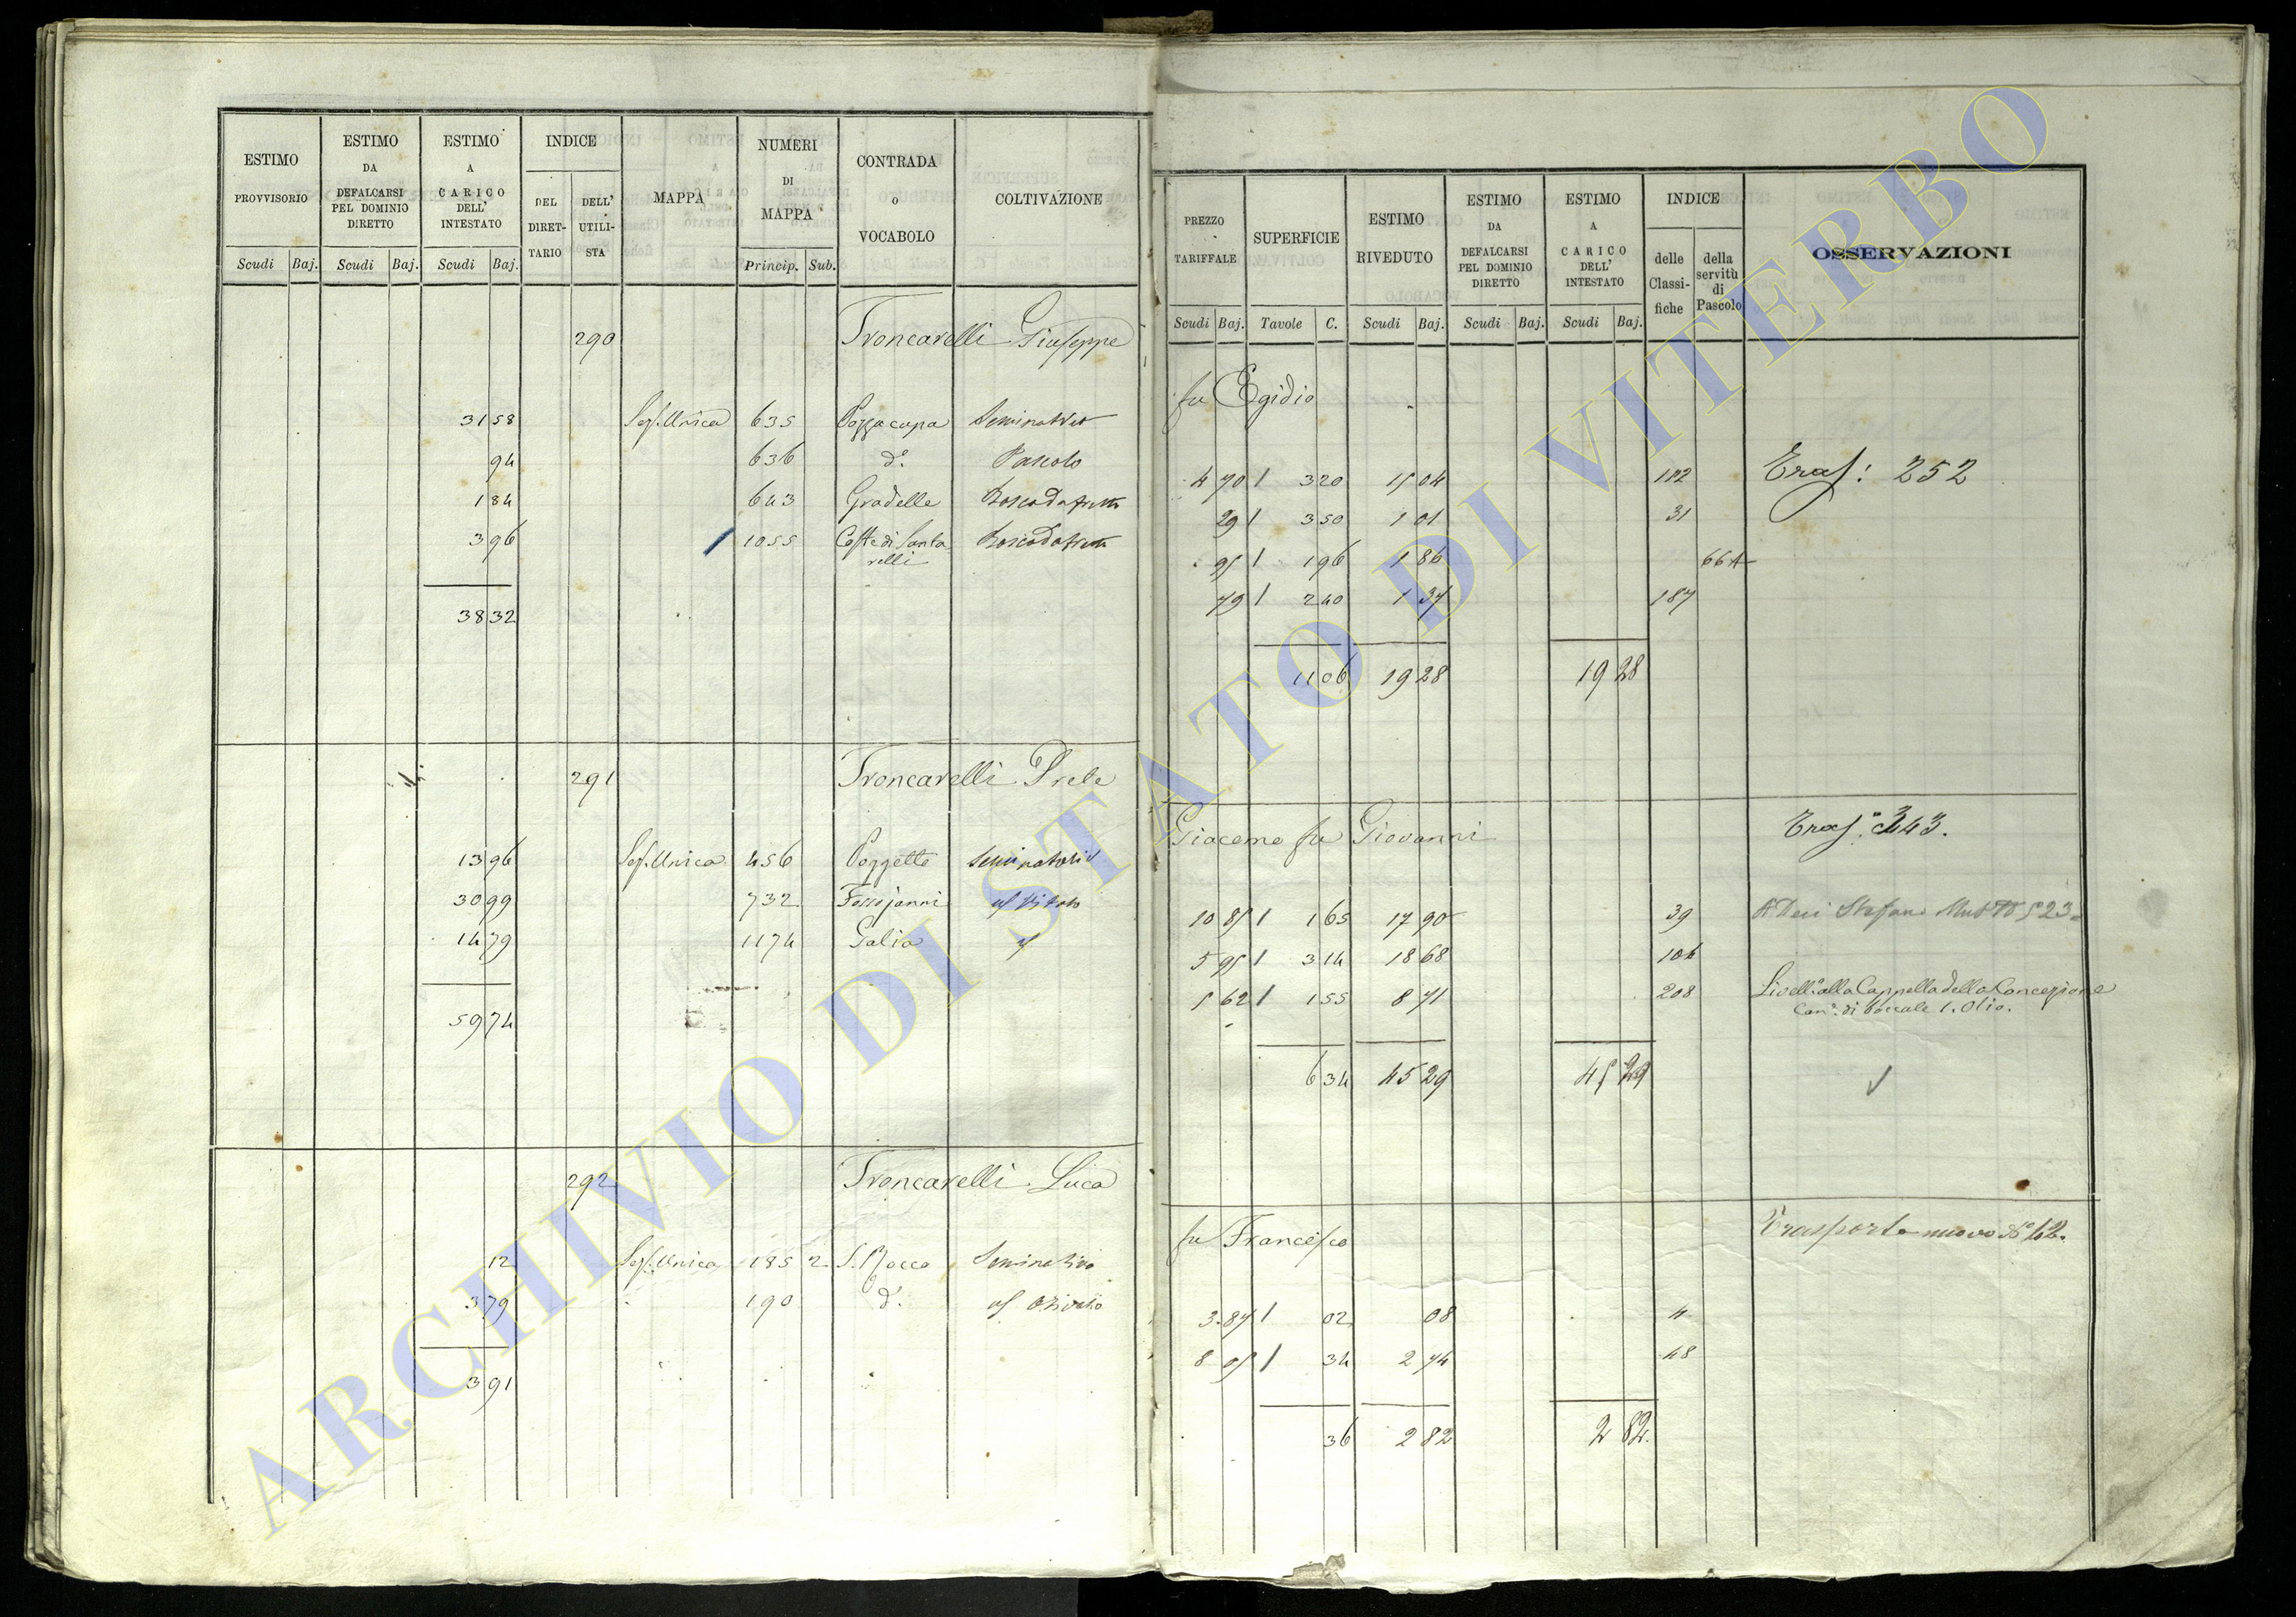 ESTIMO PROVVISORIO
ESTIMO DA DEFALCARSI PEL DOMINIO DIRETTO
ESTIMO A CARICO DELL' INTESTATO
INDICE
DEL DIRET-TARIO
DELL' UTILI-STA
MAPPA
NUMERI DI MAPPA
CONTRADA o VOCABOLO
COLTIVAZIONE
Scudi Baj. Scudi Baj. Scudi Baj. Princip. Sub.
290 Troncarelli Giuseppe
31 58 Sez. Unica 635 Pozzacupa Seminativo
94 636 d.o Pascolo
1 84 643 Gradelle Bosco da frutto
3 96 1055 Coste di Santarelli Bosco da frutto
38 32
291 Troncarelli Prete
13 96 Sez. Unica 456 Poggetto Seminativo
30 99 732 Fossojanni Vitato
14 79 1174 Galia
59 74
292 Troncarelli Luca
12 Sez. Unica 185 2 S. Rocco Seminativo
3 79 190 d.o Olivato
3 91
PREZZO TARIFFALE
SUPERFICIE
ESTIMO RIVEDUTO
ESTIMO DA DEFALCARSI PEL DOMINIO DIRETTO
ESTIMO A CARICO DELL' INTESTATO
INDICE
delle Classi-fiche
della servitù di Pascolo
OSSERVAZIONI
Scudi Baj. Tavole C. Scudi Baj. Scudi Baj. Scudi Baj.
fu Egidio
4 70 1 3 20 15 04 112 Trasf: 252
29 1 3 50 1 01 31
95 1 1 96 1 86 66A
79 1 2 40 1 37 187
11 06 19 28 19 28
Giacomo fu Giovanni Trasf. 343.
10 85 1 1 65 17 90 39 Deci Stefano 523
5 95 1 3 14 18 68 106
5 62 1 1 55 8 71 208 Livell.o alla Cappella della Concezione
Can.e di boccale 1. Olio.
6 34 45 29 45 29
fu Francesco Trasporto nuovo N° 12.
3.87 1 02 08 4
8 05 1 34 2 74 48
36 2 82 2 82
ARCHIVIO DI STATO DI VITERBO